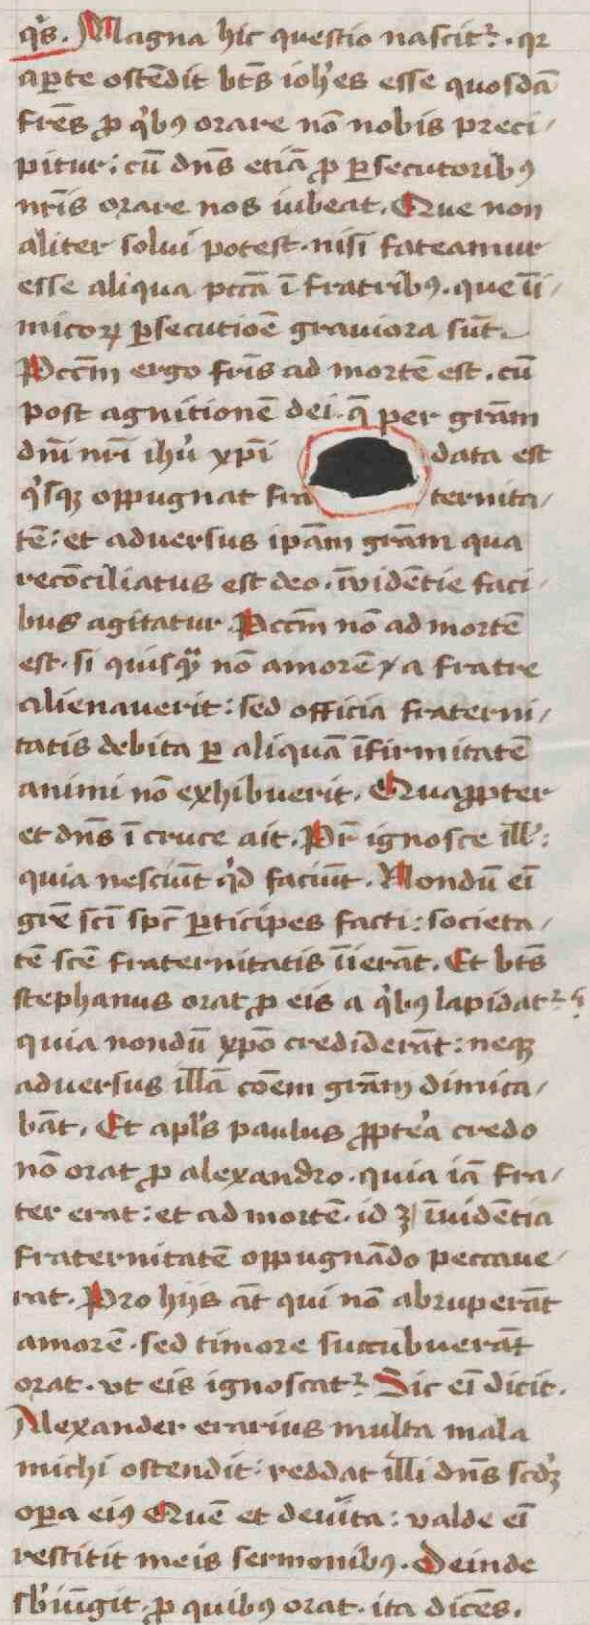 q̄s. Magna hic questio nascit᷑. qꝛ
aꝑte ostēdit bt̄s ioh̄es esse quosdā
fr̄es ꝓ qͥbꝰ orare nō nobis preci/
pitur: cū dn̄s etiā ꝓ ꝑsecutoribꝰ
nr̄is orare nos iubeat. Que non
aliter solui potest. nisi fateamur
esse aliqua pctā ī fratribꝰ. que īi/
micoꝝ ꝑsecutiōe grauiora sūt.
Pcc̄m ergo fr̄is ad mortē est. cū
post agnitionē dei. q̄ per grām
dn̄i nr̄i ihū xp̄i data est
qͥsqꝫ oppugnat fra ternita/
tē: et aduersus ip̄am grām qua
recōciliatus est deo. īuidētie faci/
bus agitatur. Pcc̄m nō ad mortē
est. si quisqᷓ nō amorē a fratre
alienauerit: sed officia fraterni/
tatis debita ꝑ aliquā īfirmitatē
animi nō exhibuerit. Quaꝓpter
et dn̄s ī cruce ait. Pr̄ ignosce ill̓:
quia nesciūt qͥd faciūt. Nondū eī
gr̄e sc̄i sp̄c ꝑticipes facti: societa/
tē sc̄e fraternitatis īierāt. Et bt̄s
stephanus orat ꝓ eis a qͥbꝰ lapidat᷑:
quia nondū xp̄o crediderāt: neqꝫ
aduersus illā cōem grām dimica/
bāt. Et apl̄s paulus ꝓpte̓a credo
nō orat ꝓ alexandro. quia iā fra/
ter erat: et ad mortē. id ꝫ īuidētia
fraternitatē oppugnādo peccaue/
rat. Pro hijs āt qui nō abruperāt
amorē. sed timore succubuerāt
orat. vt eis ignoscat᷑. Sic eī dicit.
Alexander erarius multa mala
michi ostendit: reddat illi dn̄s scd̄ꝫ
oꝑa eiꝰ Quē et deuita: valde eī
restitit meis sermonibꝰ. Deinde
sb̄iūgit. ꝓ quibꝰ orat. ita dicēs.